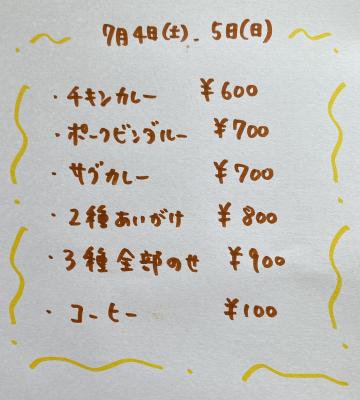 7月4日(土)、5日(日)
・チキンカレー ¥600
・ポークビンダルー ¥700
・サブカレー ¥700
・2種あいがけ ¥800
・3種全部のせ ¥900
・コーヒー ¥100